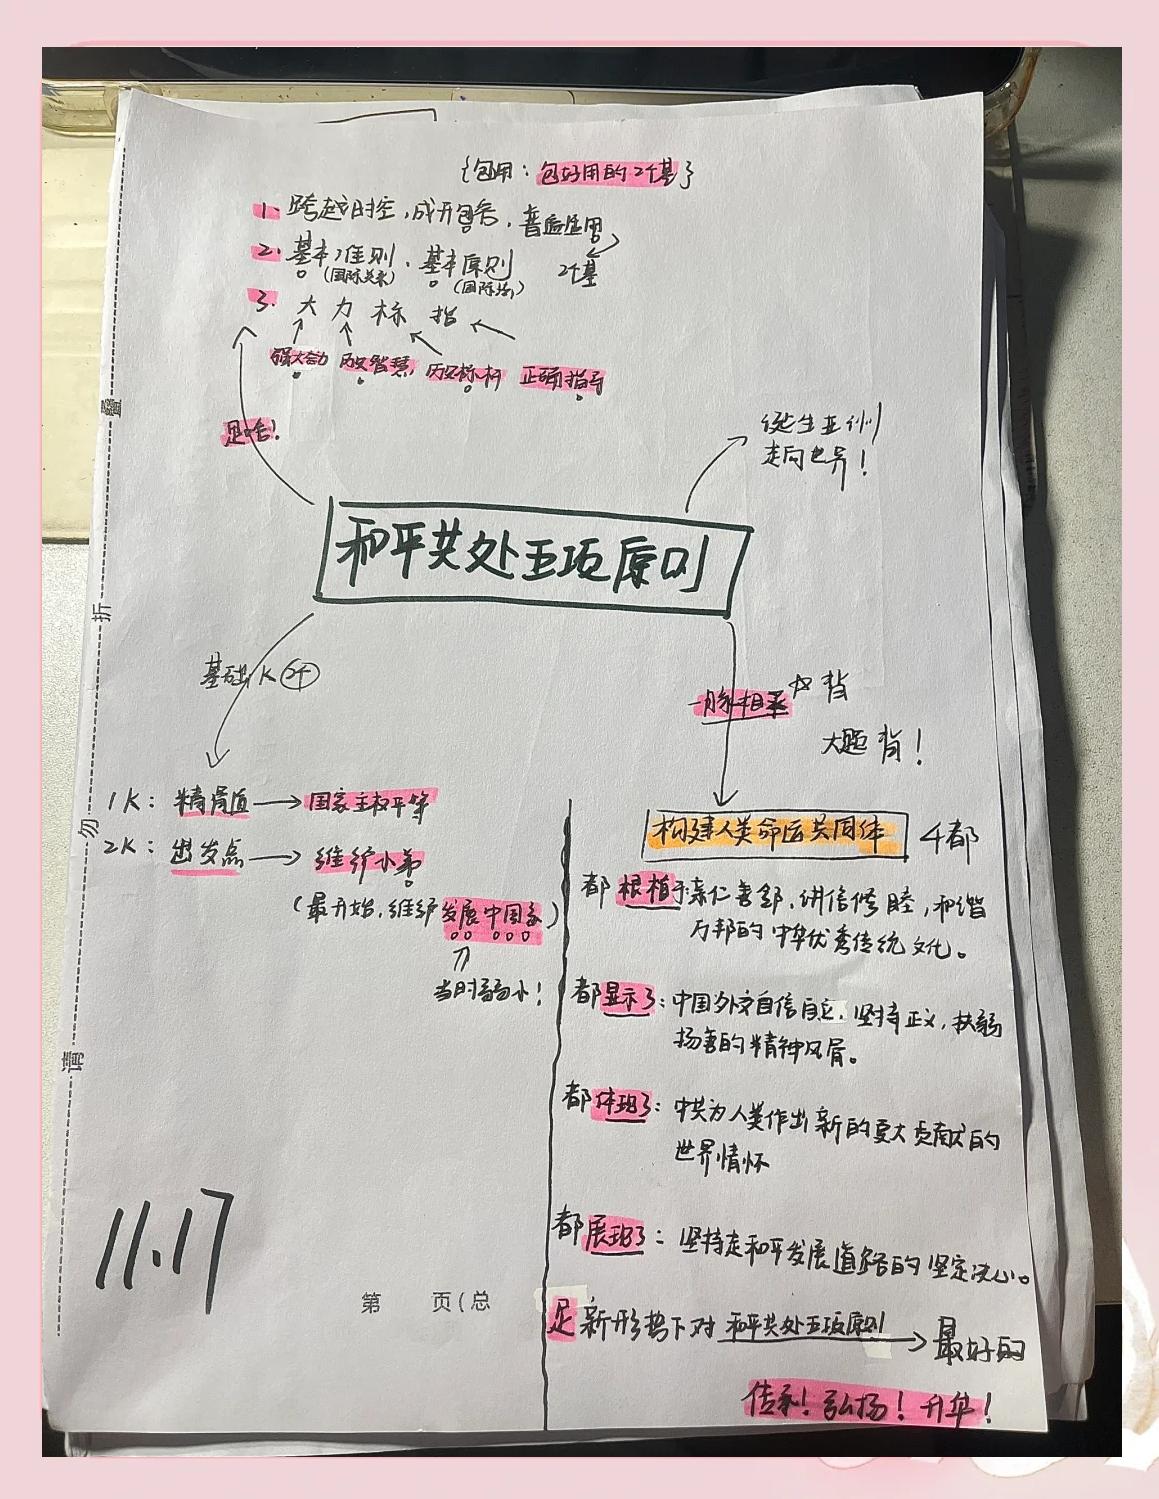 {包用：包好用的2个基}
1. 跨越时空，成开包容，普适适用
2. 基本准则、基本原则 2个基
(国际关系) (国际法)
3. 大 力 标 指
强大动力 历史智慧 历史标杆 正确指导
是啥！
诞生亚洲
走向世界！
和平共处五项原则
基础K 2个
一脉相承 背
大题背！
1K：精髓值→国家主权平等
2K：出发点→维护小弟
(最开始，维护发展中国家)
当时弱小！
构建人类命运共同体 4都
都根植于亲仁善邻，讲信修睦，协和
万邦的中华优秀传统文化。
都显示了：中国外交自信自立，坚持正义，扶弱
扬善的精神风骨。
都体现了：中共为人类作出新的更大贡献的
世界情怀
都展现了：坚持走和平发展道路的坚定决心。
是新形势下对和平共处五项原则→最好的
传承！弘扬！升华！
11.17
第 页(总
请 勿 折 叠